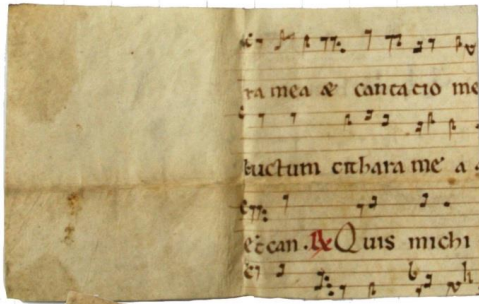 ra mea & cantacio me
luctum cithara mea a
can. ℟ Quis michi